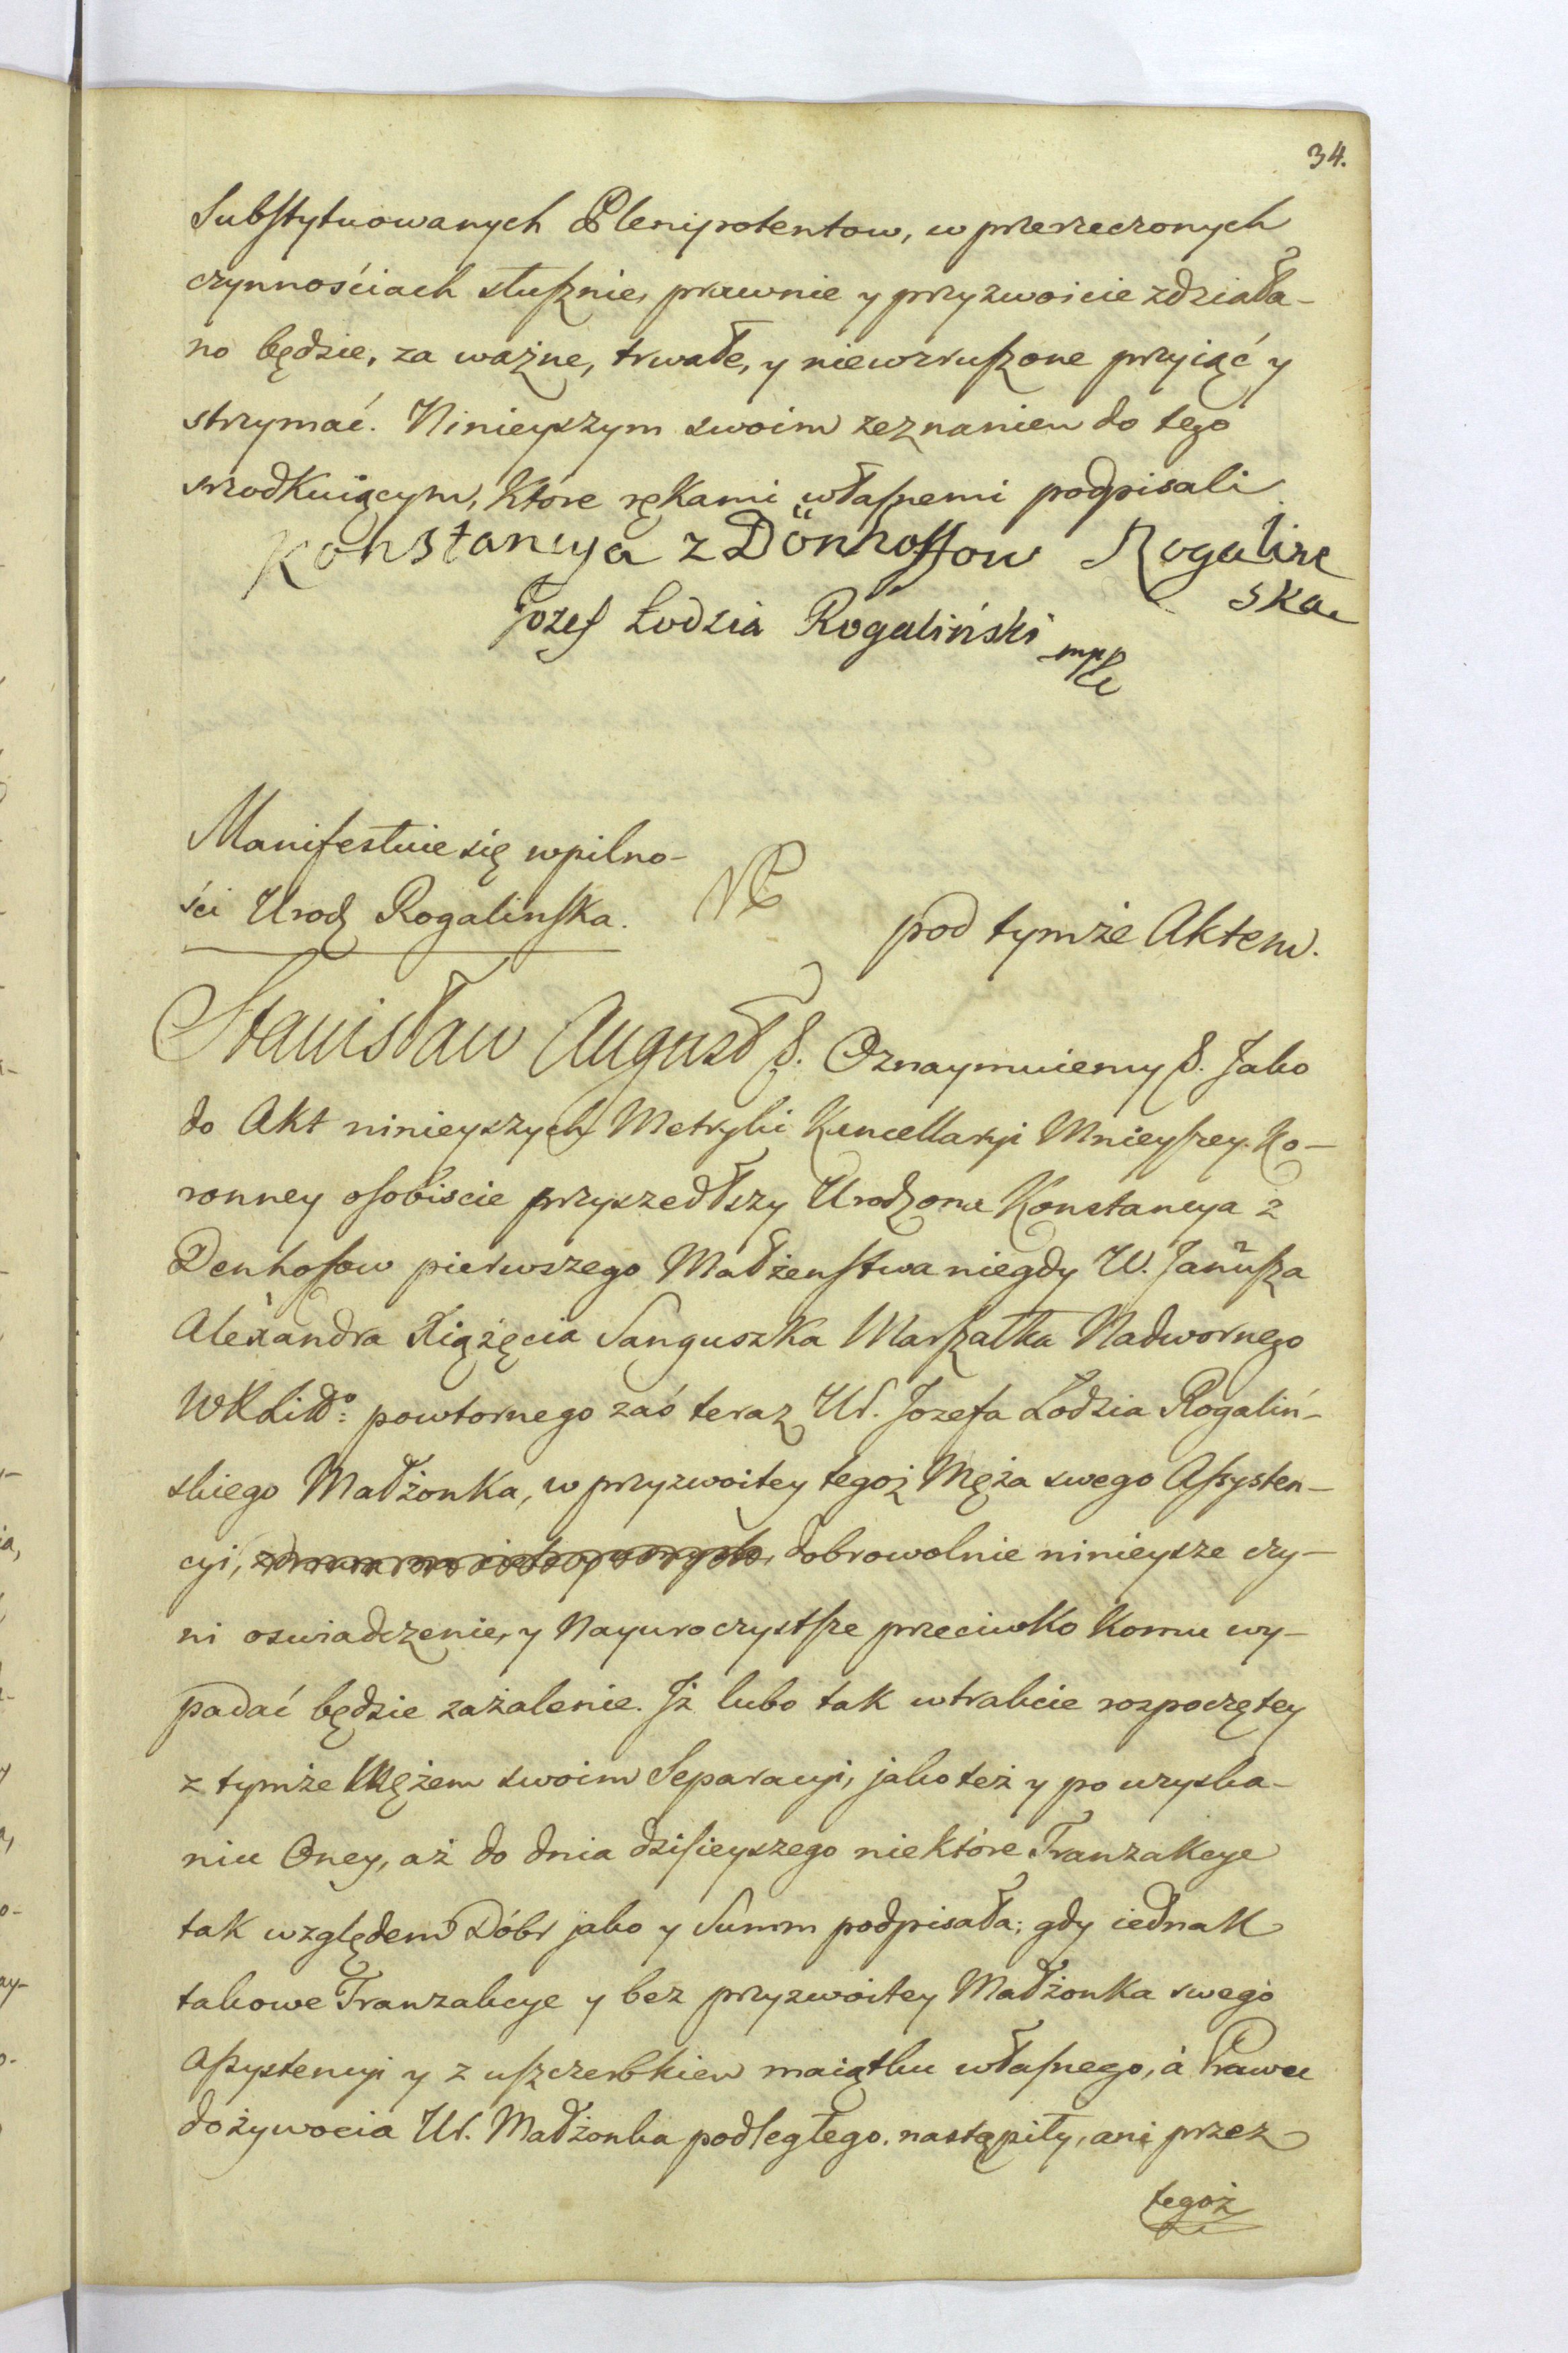 34.
Substytuowanych Plenipotentow, w przerzeczonych
czynnościach słusznie, prawnie y przyzwoicie zdziała-
no będzie, za ważne, trwałe, y niewzruszone przyiąć y
strzymać. Ninieyszym swoim zeznaniem do tego
srzodkuiącym, ktore rękami własnemi podpisali
Konstancya z Dönhoffow Rogaline
ska
Jozef Łodzia Rogaliński mpp
Manifestuie się w pilno-
ści Urodz Rogalinska.
pod tymże Aktem.
Stanisław August &. Oznaymuiemy &. Jako
do Akt ninieyszych Metryki Kancellaryi Mnieyszey Ko-
ronney osobiscie przyszedłszy Urodzona Konstancya z
Denhofow pierwszego Małżenstwa niegdy W. Janusza
Alexandra Xiążęcia Sanguszka Marszałka Nadwornego
WXLitto: powtornego zaś teraz Ur. Jozefa Łodzia Rogaliń-
skiego Małżonka, w przyzwoitey tegoż Męża swego Assysten-
cyi, dobrowolnie ninieysze czy-
ni oswiadczenie, y Nayuroczystsze przeciwko komu wy-
padać będzie zażalenie. Jż lubo tak w trakcie rozpoczętey
z tymże Mężem swoim Separacyi, jako też y po uzyska-
niu Oney, aż do dnia dzisieyszego niektóre Tranzakcye
tak względem Dóbr jako y Summ podpisała; gdy iednak
takowe Tranzakcye y bez przyzwoitey Małżonka swego
Assystencyi y z uszczerbkiem maiątku własnego, á Prawu
dożywocia Ur. Małżonka podległego, nastąpiły, ani przez
tegoż